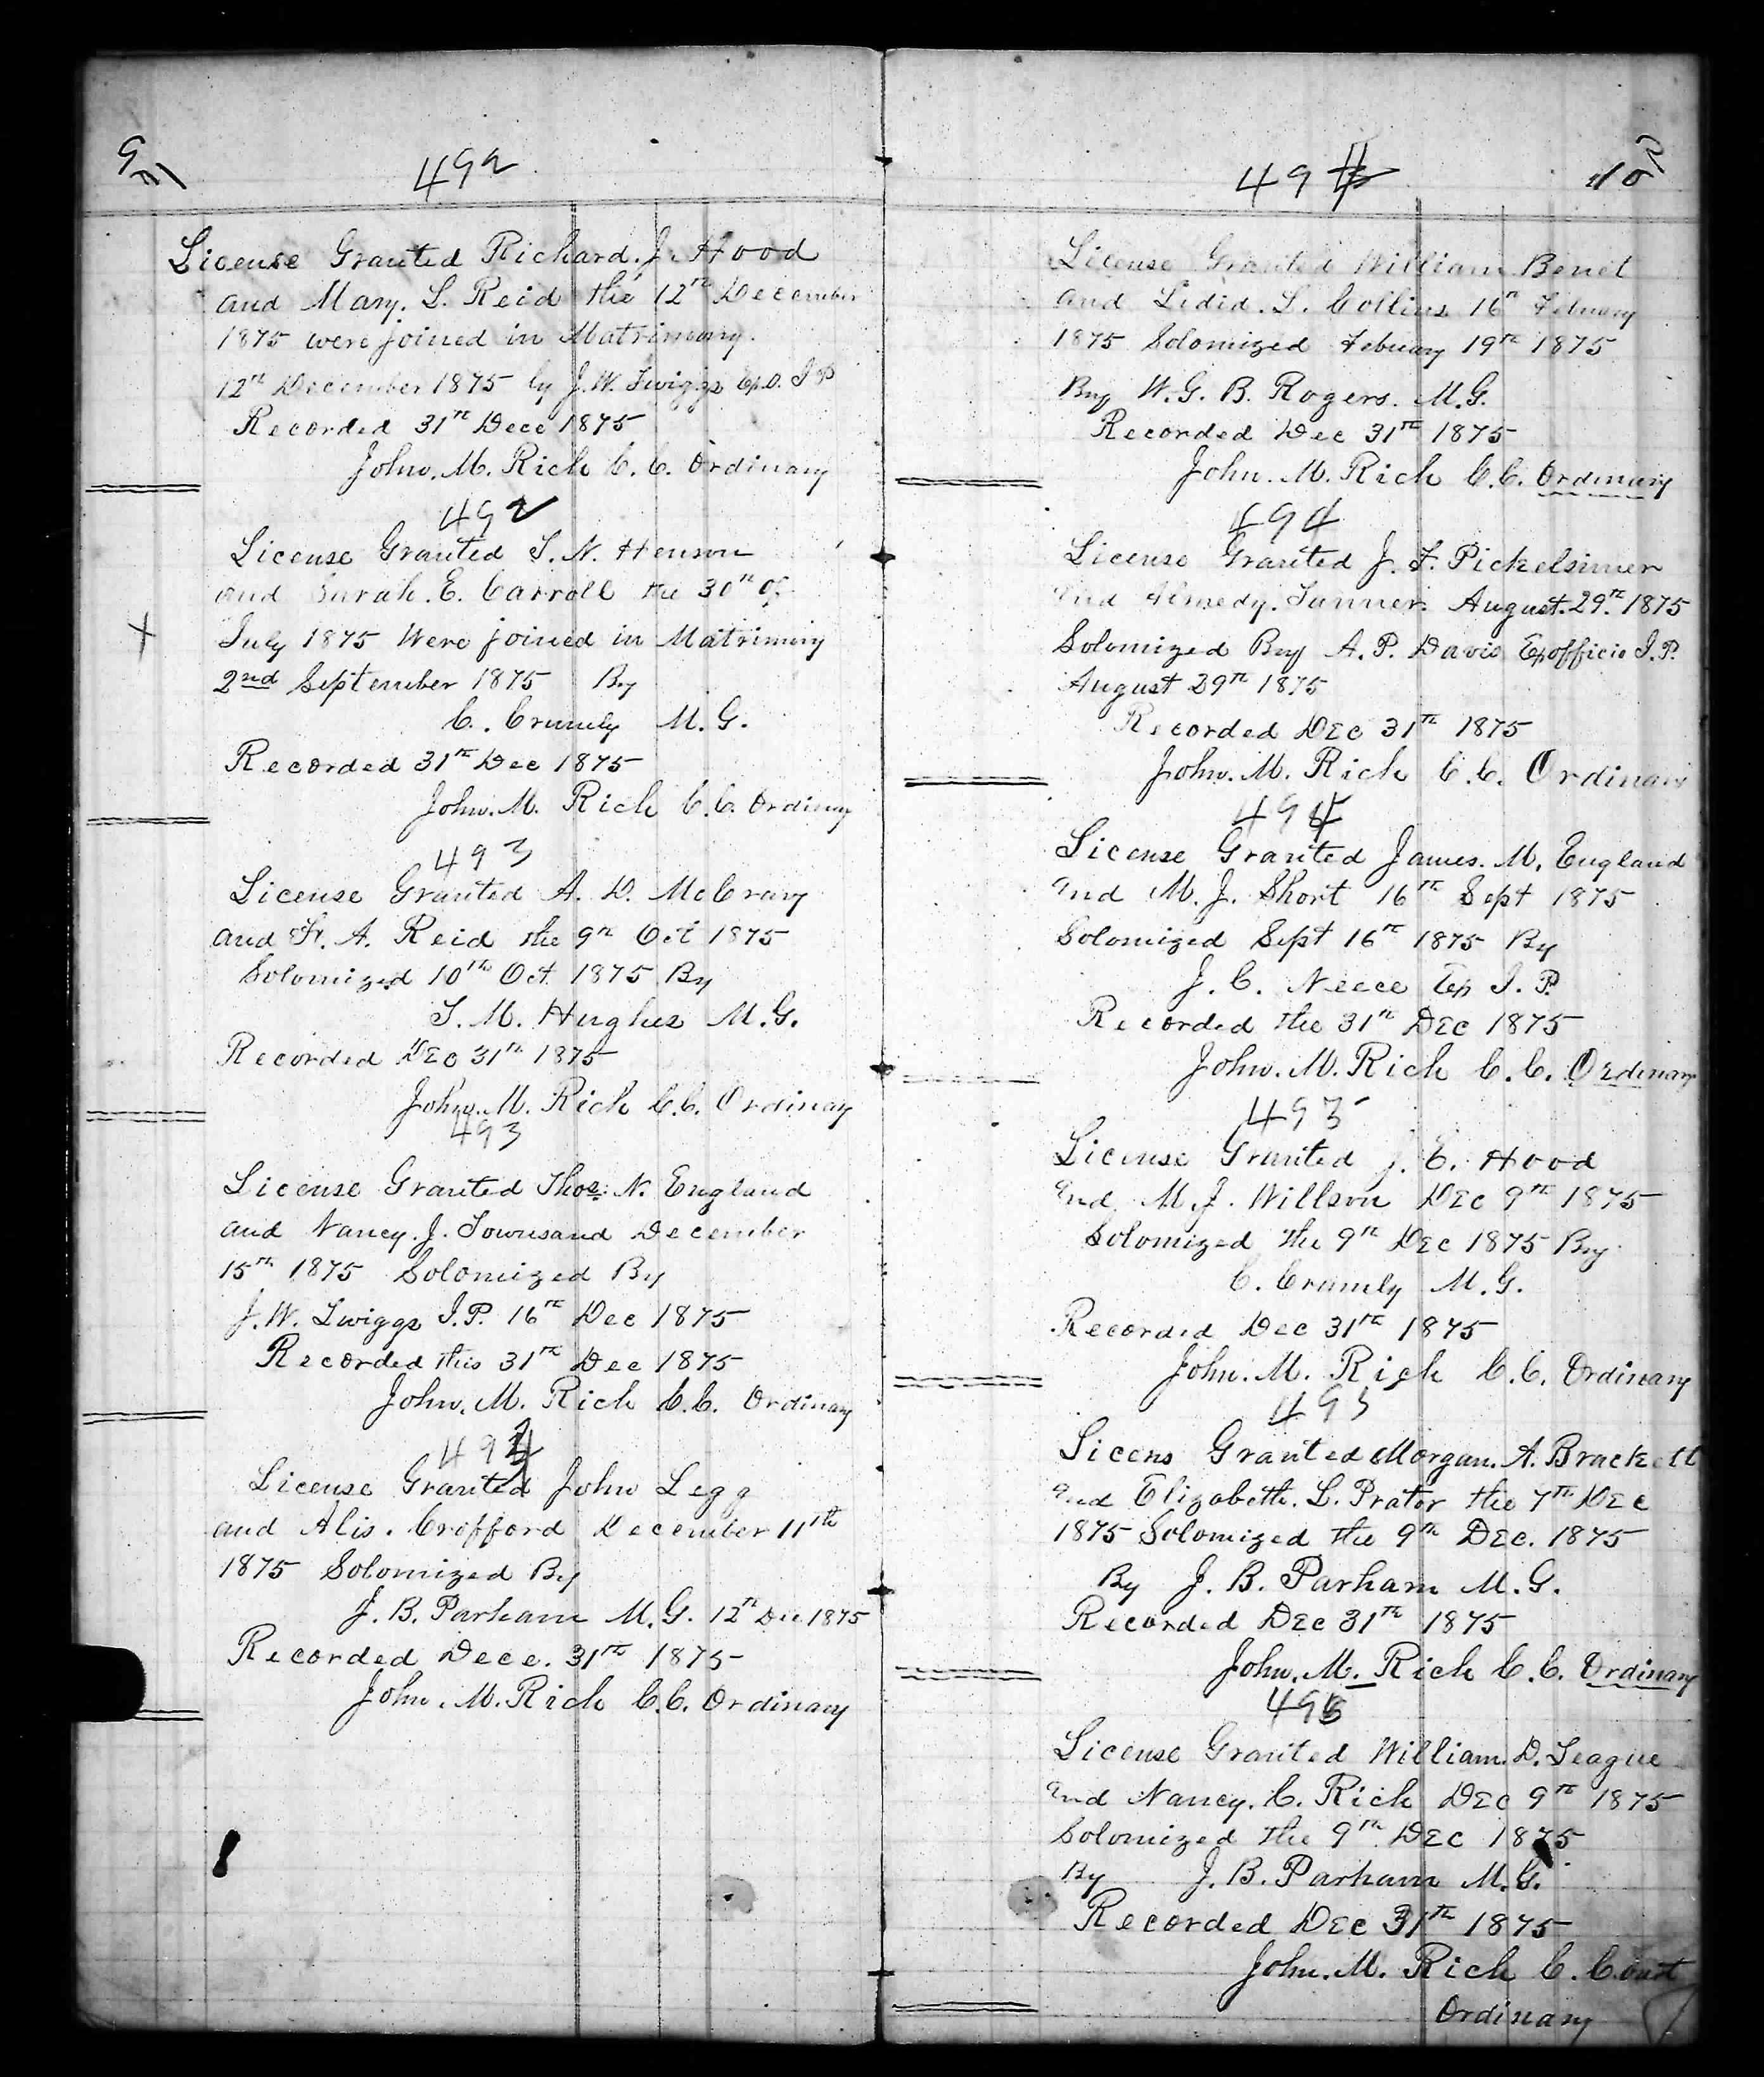 492
License Granted Richard. J. Hood
and Mary. L. Reid the 12th December
1875 were joined in Matrimony.
12th December 1875 by J. W. Twiggs Exp.O. J P
Recorded 31th Dece 1875
John. M. Rich C. C. Ordinary
492
License Granted T. N. Henson
and Sarah. E. Carroll the 30th Of
July 1875 Were joined in Matrimony
2nd September 1875 By
C. Crumly M. G.
Recorded 31th Dec 1875
John. M. Rich C. C. Ordinay
493
License Granted A. D. McCrary
and F. A. Reid the 9th Oct 1875
Solomized 10th Oct. 1875 By
T. M. Hughes M. G.
Recorded DEC 31th 1875
John. M. Rich C. C. Ordinay
493
License Granted Thos. N. England
and Nancy. J. Townsand December
15th 1875 Solomized By
J. W. Twiggs J. P. 16th Dec 1875
Recorded this 31th Dec 1875
John. M. Rich C. C. Ordinary
License Granted John Legg
and Alis. Crofford December 11th
1875 Solomized By
J. B. Parham M. G. 12th Dec 1875
Recorded Dece. 31th 1875
John. M. Rich C. C. Ordinary
494
License Granted William Benet
and Lidid. L. Collins 16th Febuary
1875 Solomized Febuary 19th 1875
By W. G. B. Rogers. M. G.
Recorded Dec 31th 1875
John. M. Rich C. C. Ordinary
494
License Granted J. F. Pickelsimer
and Tanner. August. 29th. 1875
Solomized By A. P. Davis Exofficio J. P.
August 29th 1875
Recorded DEC 31th 1875
John. M. Rich C. C. Ordinary
494
License Granted James. M. England
and M. J. Short 16th Sept 1875
Solomized Sept 16th 1875 By
J. C. Neece Exp J. P.
Recorded the 31th DEC 1875
John. M. Rich C. C. Ordinary
495
License Granted J. E. Hood
and M. J. Willson DEC 9th 1875
Solomized the 9th DEC 1875 By
C. Crumly M. G.
Recorded Dec 31th 1875
John. M. Rich C. C. Ordinary
495
Licens Granted Morgan. A. Brackett
and Elizabeth. L. Prator the 7th DEC
1875 Solomized the 9th DEC. 1875
By J. B. Parham M. G.
Recorded DEC 31th 1875
John. M. Rich C. C. Ordinary
495
License Granted William. D. Teague
and Nancy. C. Rich DEC 9th 1875
Solomized the 9th DEC 1875
By J. B. Parham M. G.
Recorded DEC 31th 1875
John. M. Rich C. Court
Ordinary